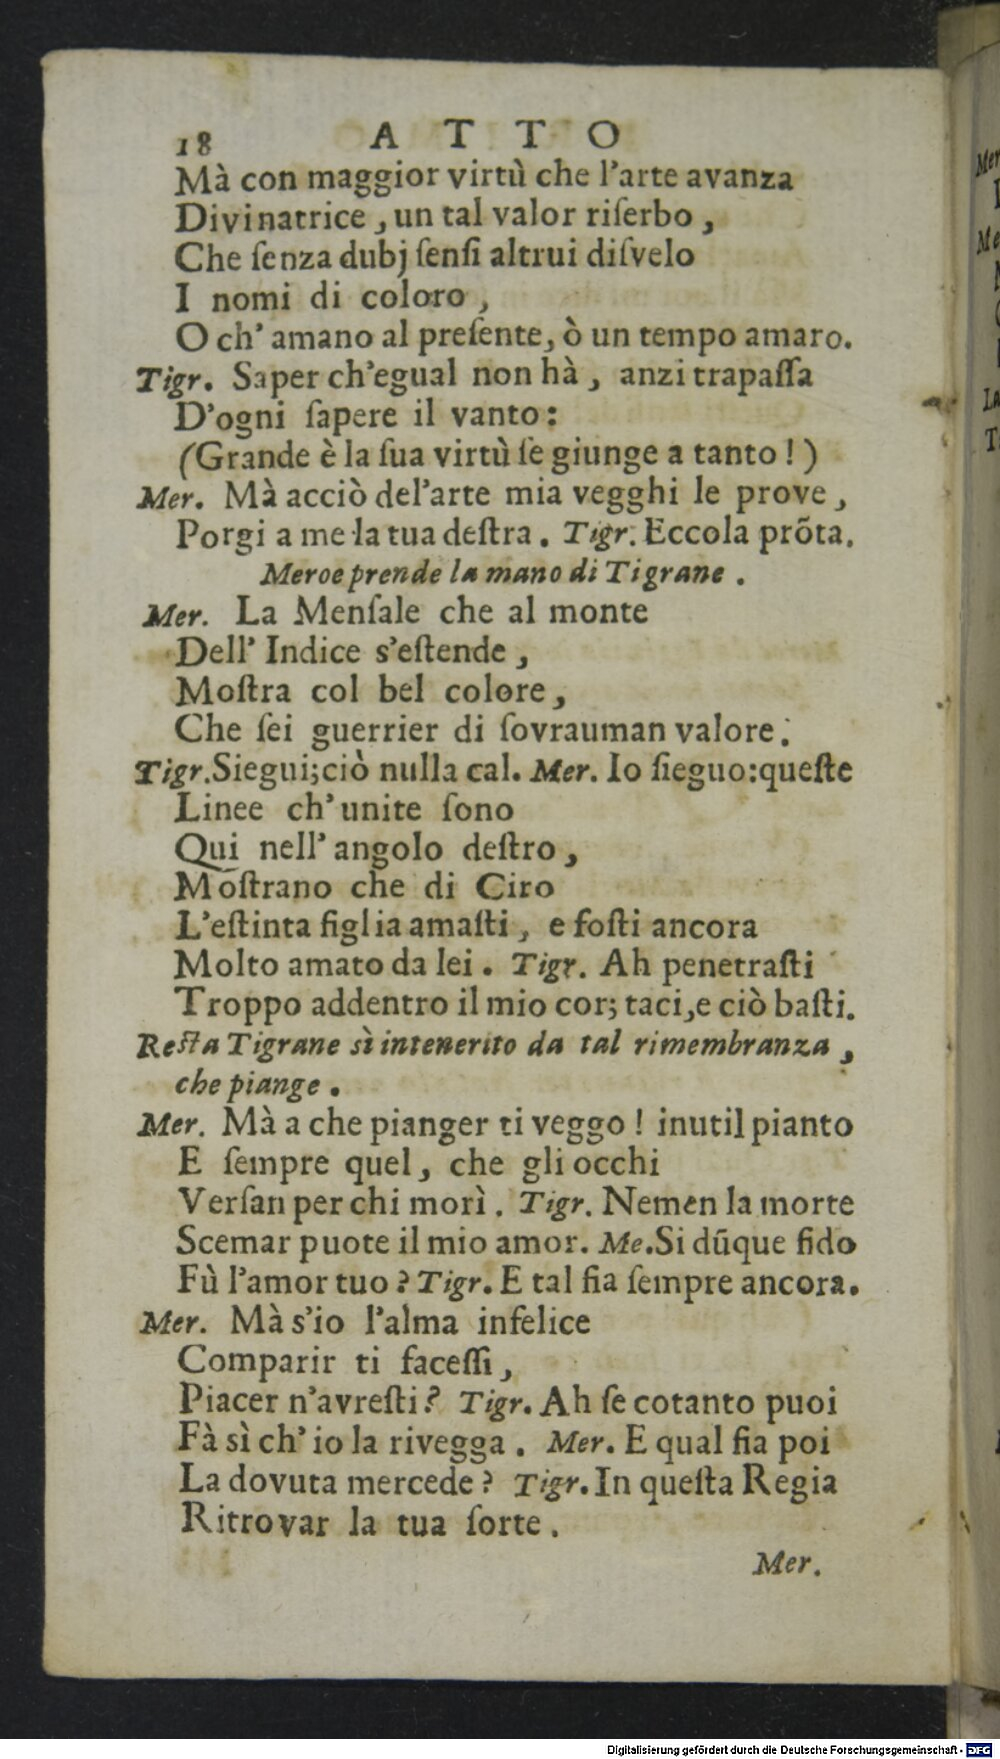 18 ATTO
Mà con maggior virtù che l'arte avanza
Divinatrice, un tal valor riſerbo,
Che ſenza dubj ſenſi altrui diſvelo
I nomi di coloro,
O ch' amano al preſente, ò un tempo amaro.
Tigr. Saper ch'egual non hà, anzi trapaſſa
D'ogni ſapere il vanto:
(Grande è la ſua virtù ſe giunge a tanto!)
Mer. Mà acciò del'arte mia vegghi le prove,
Porgi a me la tua deſtra. Tigr. Eccola prõta.
Meroe prende la mano di Tigrane.
Mer. La Menſale che al monte
Dell' Indice s'eſtende,
Moſtra col bel colore,
Che ſei guerrier di ſovrauman valore.
Tigr. Siegui; ciò nulla cal. Mer. Io ſieguo: queſte
Linee ch' unite ſono
Qui nell' angolo deſtro,
Moſtrano che di Ciro
L'eſtinta figlia amaſti, e foſti ancora
Molto amato da lei. Tigr. Ah penetraſti
Troppo addentro il mio cor; taci, e ciò baſti.
Reſta Tigrane sì intenerito da tal rimembranza,
che piange.
Mer. Mà a che pianger ti veggo! inutil pianto
E ſempre quel, che gli occhi
Verſan per chi morì. Tigr. Nemen la morte
Scemar puote il mio amor. Me. Si dũque fido
Fù l'amor tuo? Tigr. E tal fia ſempre ancora.
Mer. Mà s'io l'alma infelice
Comparir ti faceſſi,
Piacer n'avreſti? Tigr. Ah ſe cotanto puoi
Fà sì ch' io la rivegga. Mer. E qual fia poi
La dovuta mercede? Tigr. In queſta Regia
Ritrovar la tua ſorte.
Mer.
Digitalisierung gefördert durch die Deutsche Forschungsgemeinschaft - DFG